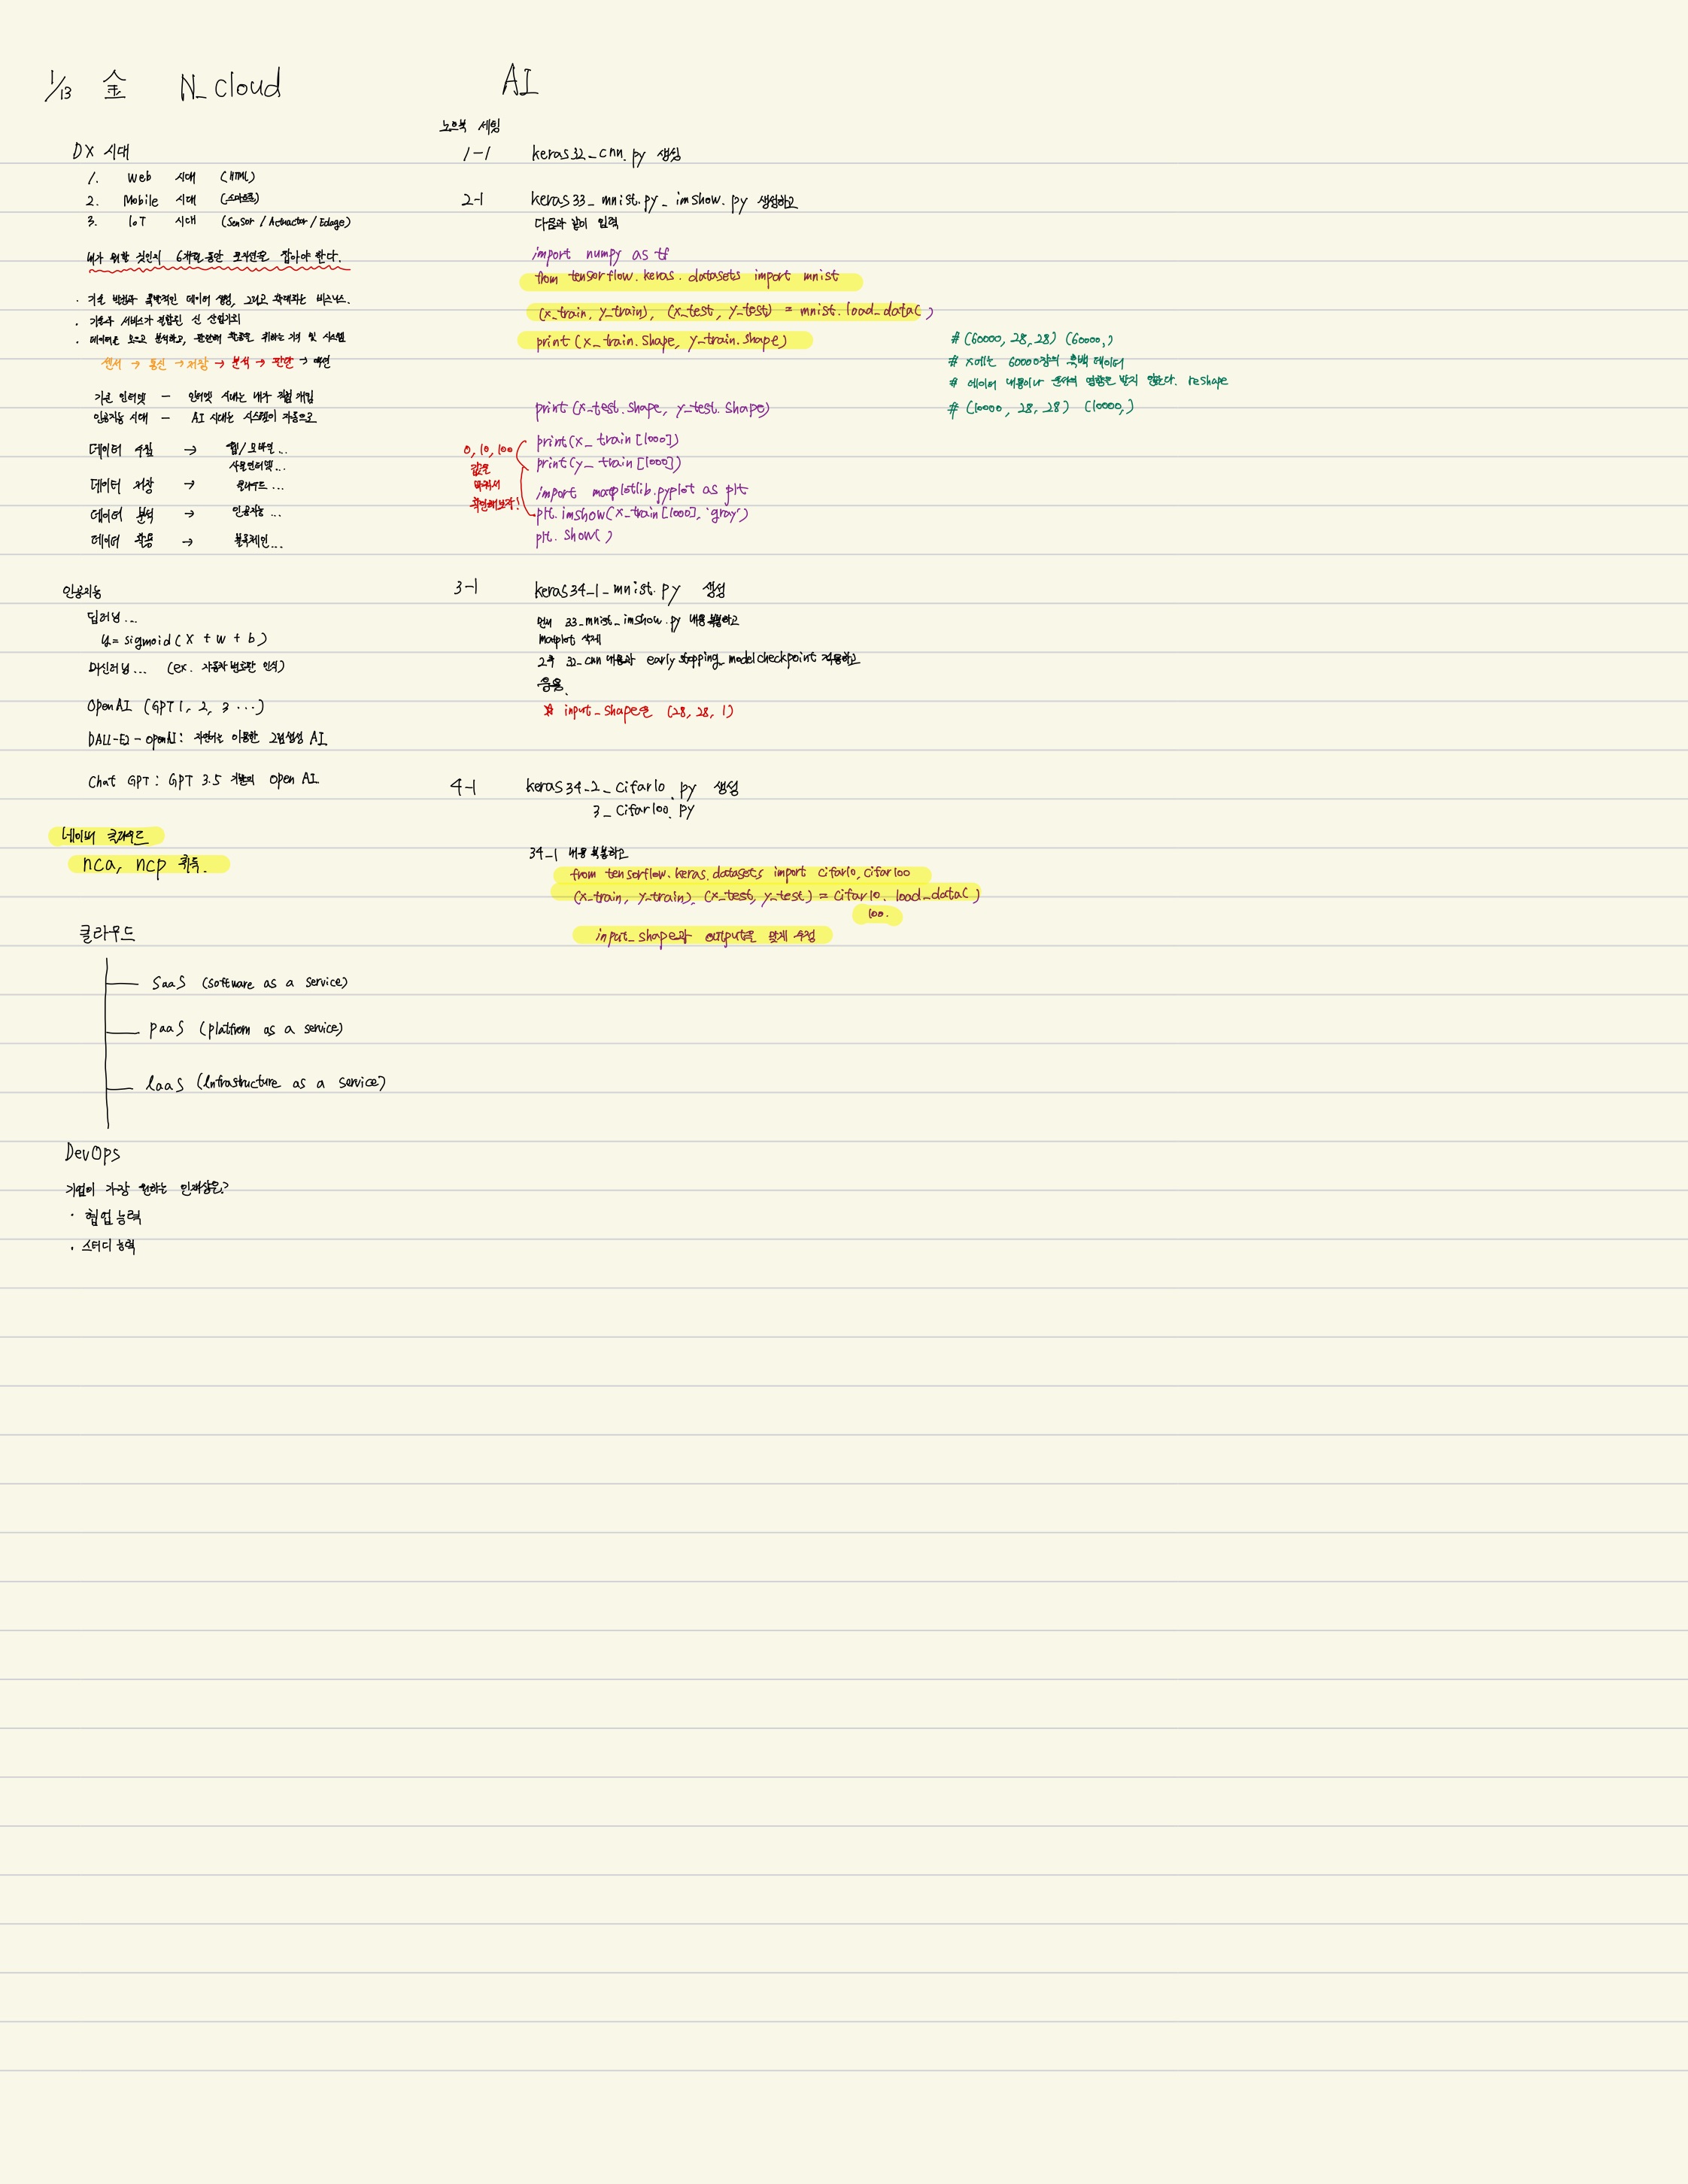 1/13 金 N_cloud
DX 시대
1. Web 시대 (HTML)
2. Mobile 시대 (스마트폰)
3. IoT 시대 (Sensor / Actuactor / Edage)
내가 뭐할 것인지 6개월동안 포지션을 잡아야 한다.
· 기술 발전과 폭발적인 데이터 생성, 그리고 확대되는 비즈니스.
· 기술과 서비스가 결합된 신 산업기회
· 데이터를 모으고 분석하고, 판단해 활용을 위하는 기기 및 시스템
센서 → 통신 → 저장 → 분석 → 판단 → 액션
기존 인터넷 - 인터넷 시대는 내가 직접 개입
인공지능 시대 - AI 시대는 시스템이 자동으로
데이터 수집 → 웹/모바일...
사물인터넷...
데이터 저장 → 클라우드...
데이터 분석 → 인공지능...
데이터 활용 → 블록체인...
인공지능
딥러닝...
y= sigmoid(x + w + b)
머신러닝... (ex. 자동차 번호판 인식)
OpenAI (GPT 1, 2, 3 ...)
DALL-E2 - OpenAI: 자연어를 이용한 그림생성 AI
Chat GPT: GPT 3.5 기반의 Open AI
네이버 클라우드
nca, ncp 취득.
클라우드
SaaS (software as a service)
PaaS (platfrom as a service)
IaaS (Infrastructure as a service)
DevOps
기업이 가장 원하는 인재상은?
· 협업 능력
· 스터디 능력
AI
노트북 세팅
1-1 keras32_cnn.py 생성
2-1 keras33_mnist.py_imshow.py 생성하고
다음과 같이 입력
import numpy as tf
from tensorflow.keras.datasets import mnist
(x_train, y_train), (x_test, y_test) = mnist.load_data()
print(x_train.shape, y_train.shape) # (60000, 28, 28) (60000,)
# x에는 60000장의 흑백 데이터
# 데이터 내용이나 순서에 영향을 받지 않는다. reshape
print(x_test.shape, y_test.shape) # (10000, 28, 28) (10000,)
0, 10, 100
값을
바꿔서
확인해보자!
print(x_train[1000])
print(y_train[1000])
import matplotlib.pyplot as plt
plt.imshow(x_train[1000], 'gray')
plt.show()
3-1 keras34_1_mnist.py 생성
먼저 33_mnist_imshow.py 내용 복붙하고
matplot 삭제
2후 32_cnn 내용과 early stopping_modelcheckpoint 적용하고
응용.
※ input_shape은 (28, 28, 1)
4-1 keras34_2_cifar10.py 생성
3_cifar100.py
34_1 내용 복붙하고
from tensorflow.keras.datasets import cifar10, cifar100
(x_train, y_train), (x_test, y_test) = cifar10.load_data()
100.
input_shape와 output을 맞게 수정